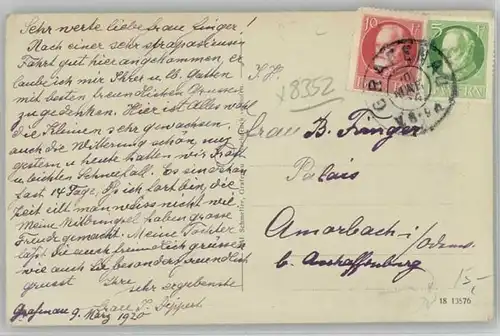 Sehr werte liebe Frau Finger!
Nach einer sehr strapazreichen
Fahrt gut hier angekommen, er
laube ich mir Ihrer u. lb. Gatten
mit besten freundlichen Grüssen
zu gedenken. Hier ist Alles wohl
die Kleinen sehr gewachsen,
auch die Witterung schön, nur
gestern u heute hatten wir
u leichten Schneefall. Es sind schon
fast 14 Tage, das ich fort bin, die
Zeit eilt man weiss nicht wie.
Meine Mitbringsel haben grosse
Freude gemacht. Meine Tochter
lässt Sie auch freundlich grüssen
wie auch Sie besonders freundlich
grüsst Ihre
sehr ergebenste
Frau
Grafenau 9. März 1920
10
5
BAYERN
GRAFENAU
x 8352
Frau B. Finger
Palais
Amorbach i/Odenw.
b. Aschaffenburg
15,-
18 13576